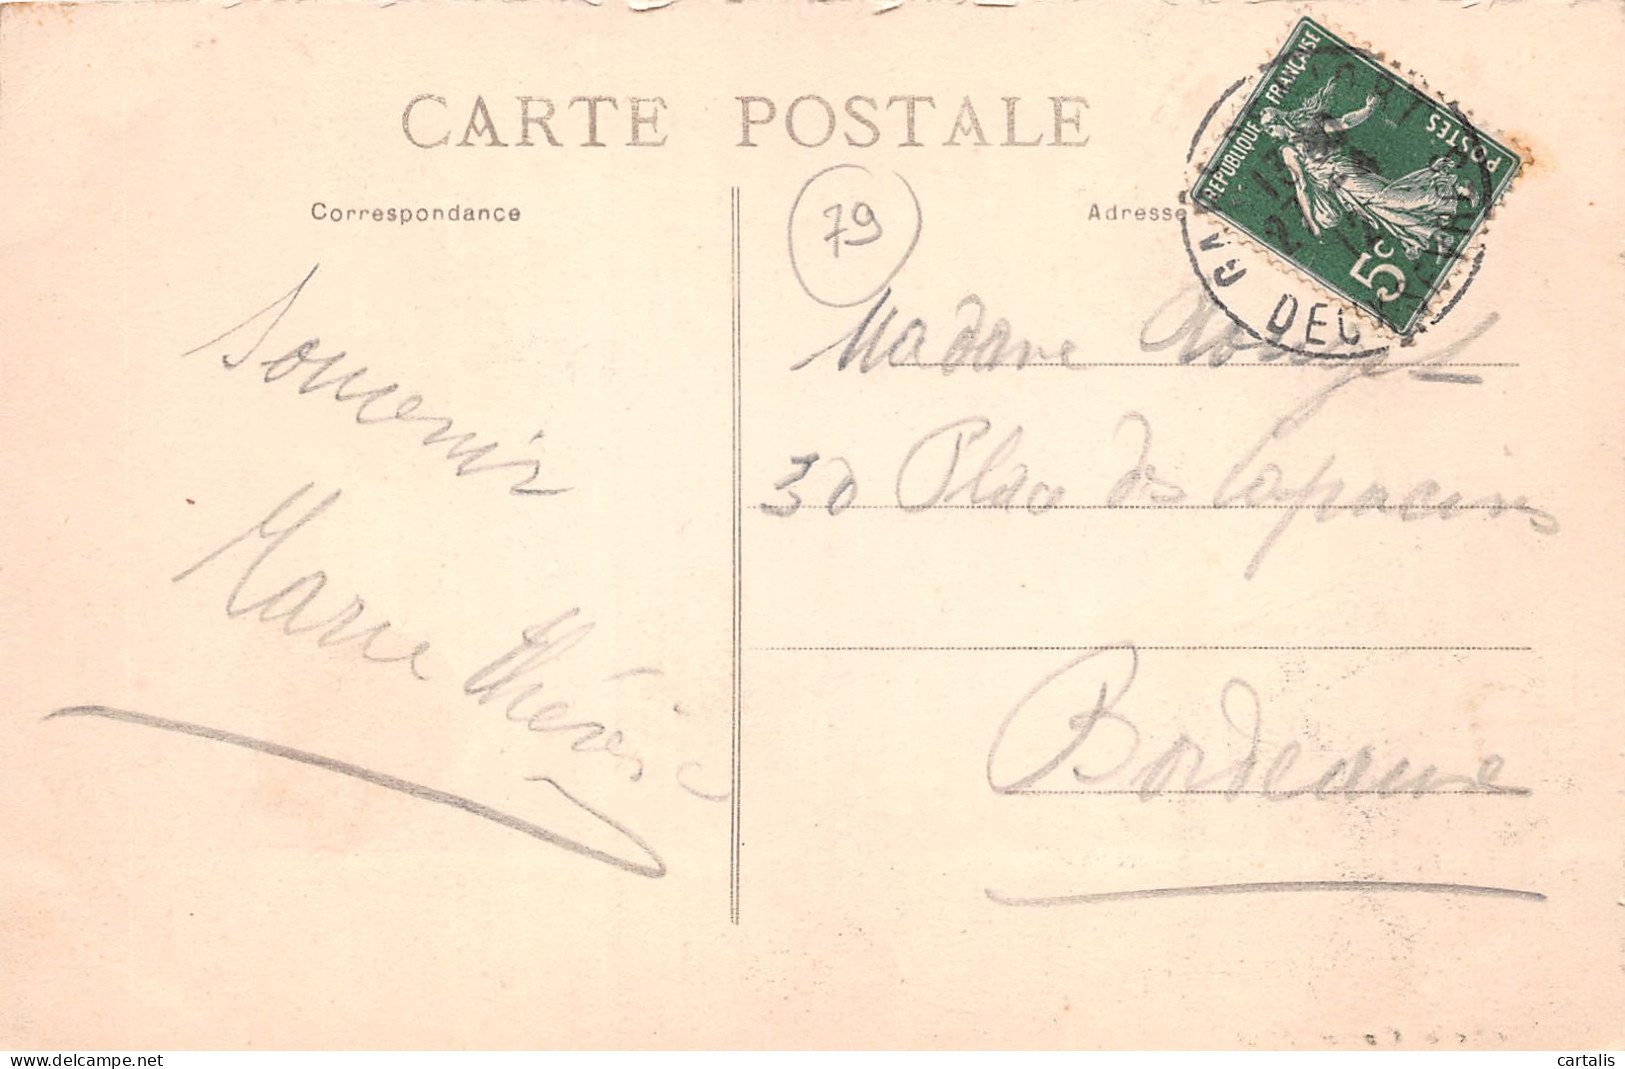 CARTE POSTALE
Correspondance
Adresse
79
RÉPUBLIQUE FRANÇAISE
POSTES
5c
13
27
12
DEUX
Souvenir
Marie Thérèse
Madame
30 Place des Capucins
Bordeaux
www.delcampe.net
cartalis